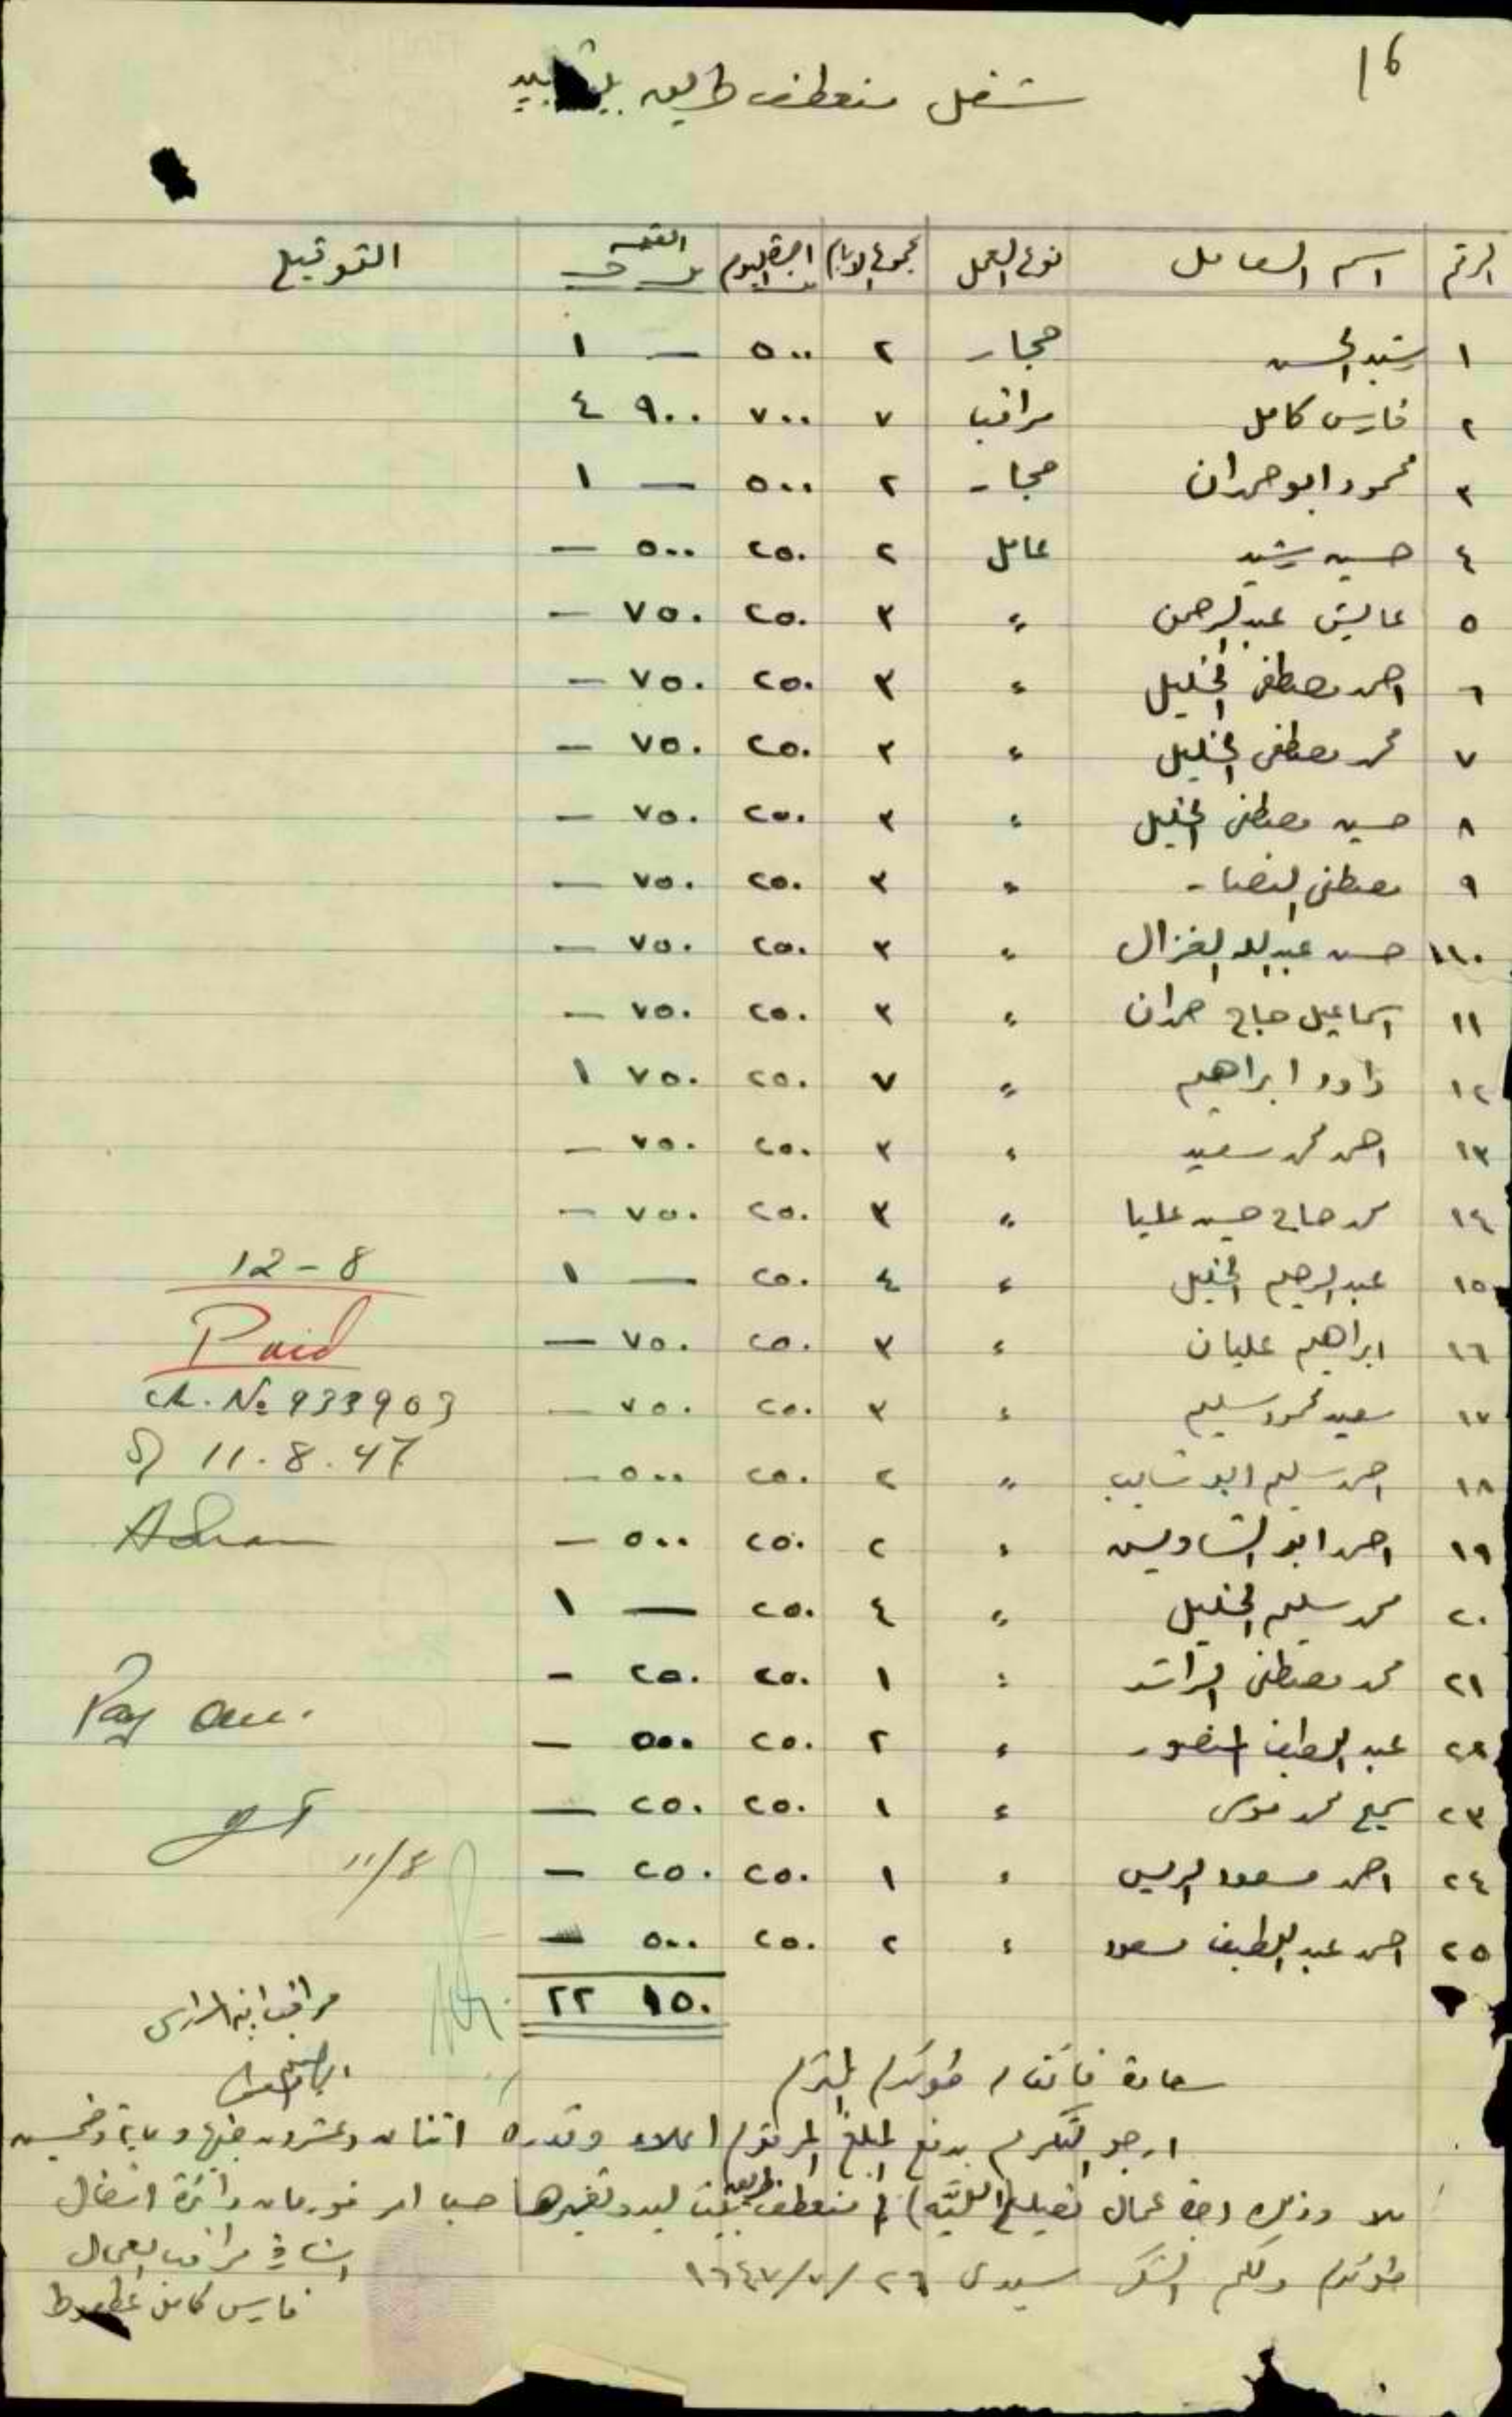 16
شغل منعطف طريق بيت ليد
الرقم اسم العامل نوع العمل مجموع الايام اجرة اليوم القيمة التوقيع
١ رشيد الحسن حجار ٢ ٥٠٠ — ١
٢ فارس كامل مراقب ٧ ٧٠٠ ٩٠٠ ٤
٣ محمود ابو حمدان حجار ٢ ٥٠٠ — ١
٤ حسين رشيد عامل ٢ ٢٥٠ ٥٠٠ —
٥ عايش عبد الرحمن " ٣ ٢٥٠ ٧٥٠ —
٦ احمد مصطفى الخليل " ٣ ٢٥٠ ٧٥٠ —
٧ محمد مصطفى الخليل " ٣ ٢٥٠ ٧٥٠ —
٨ حسين مصطفى الخليل " ٣ ٢٥٠ ٧٥٠ —
٩ مصطفى النصار " ٣ ٢٥٠ ٧٥٠ —
١٠ حسن عبد الله الغزال " ٣ ٢٥٠ ٧٥٠ —
١١ اسماعيل حاج حمدان " ٣ ٢٥٠ ٧٥٠ —
١٢ داود ابراهيم " ٧ ٢٥٠ ٧٥٠ ١
١٣ احمد محمد سعيد " ٣ ٢٥٠ ٧٥٠ —
١٤ محمد حاج حسين عليا " ٣ ٢٥٠ ٧٥٠ —
١٥ عبد الرحيم الخليل " ٤ ٢٥٠ — ١
١٦ ابراهيم عليان " ٣ ٢٥٠ ٧٥٠ —
١٧ سعيد محمود سليم " ٣ ٢٥٠ ٧٥٠ —
١٨ احمد سليم ابو شايب " ٢ ٢٥٠ ٥٠٠ —
١٩ احمد ابو الشاويش " ٢ ٢٥٠ ٥٠٠ —
٢٠ محمد سليم الخليل " ٤ ٢٥٠ — ١
٢١ محمد مصطفى الراشد " ١ ٢٥٠ ٢٥٠ —
٢٢ عبد اللطيف المنصور " ٢ ٢٥٠ ٥٠٠ —
٢٣ سميح محمد موسى " ١ ٢٥٠ ٢٥٠ —
٢٤ احمد مسعود الريس " ١ ٢٥٠ ٢٥٠ —
٢٥ احمد عبد اللطيف مسعود " ٢ ٢٥٠ ٥٠٠ —
١٥٠ ٢٢
12-8
Paid
ch. No 933903
11.8.47
Pay
11/8
سعادة قائمقام طولكرم المحترم
ارجو التكرم بدفع المبلغ المرقوم اعلاه وقدره اثنان وعشرون جنيها وماية وخمسين
ملا وذلك اجرة عمال تصليح منعطف طريق بيت ليد وغيرها حسب امر فورمان دائرة اشغال
طولكرم ولكم الشكر سيدي ٢٦/٧/١٩٤٧
مراقب العمال
فارس كامل